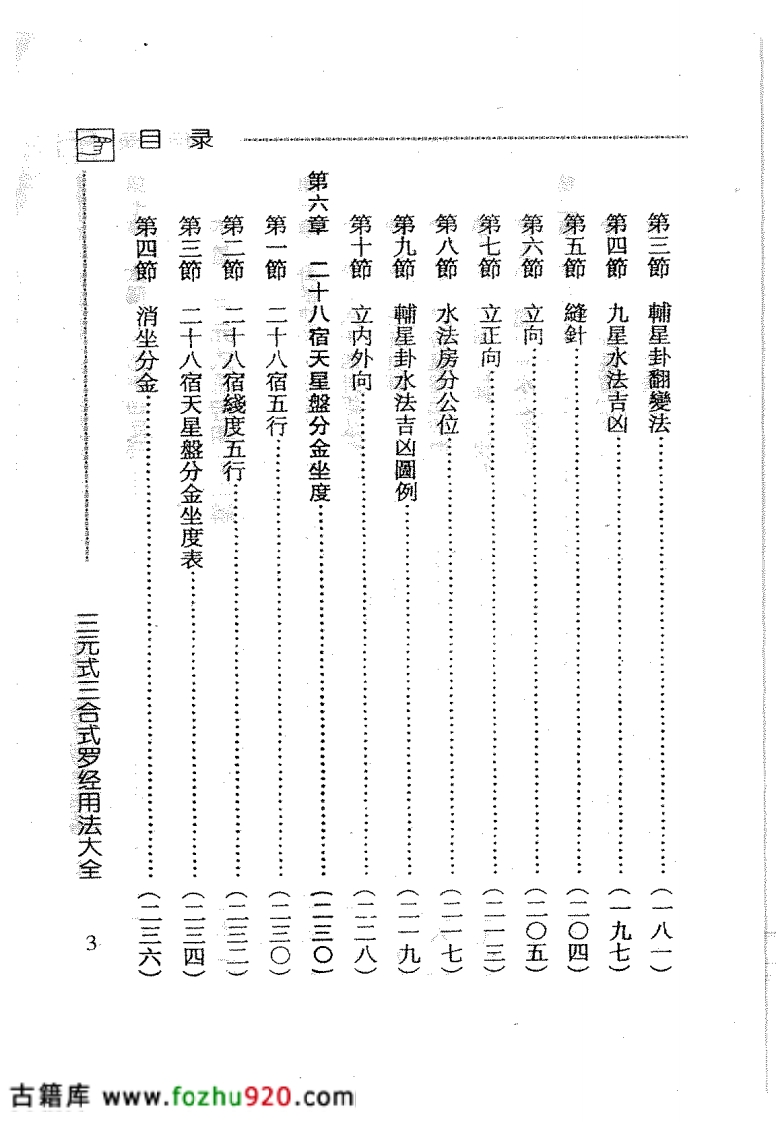 目录
第三節 輔星卦翻變法……（一八一）
第四節 九星水法吉凶……（一九七）
第五節 縫針……（二〇四）
第六節 立向……（二〇五）
第七節 立正向……（二一三）
第八節 水法房分公位……（二一七）
第九節 輔星卦水法吉凶圖例……（二一九）
第十節 立内外向……（二二八）
第六章 二十八宿天星盤分金坐度……（二三〇）
第一節 二十八宿五行……（二三〇）
第二節 二十八宿綫度五行……（二三二）
第三節 二十八宿天星盤分金坐度表……（二三四）
第四節 消坐分金……（二三六）
三元式三合式罗经用法大全
3
古籍库 www.fozhu920.com